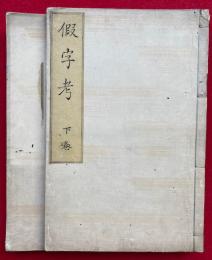 假字考
下卷